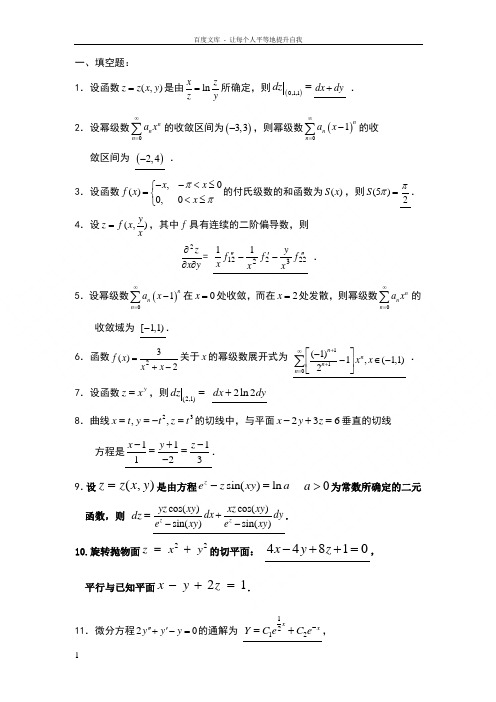 百度文库 - 让每个人平等地提升自我
一、填空题:
1.设函数 z = z(x, y) 是由 x/z = ln z/y 所确定,则 dz|_(0,1,1) = dx + dy .
2.设幂级数 ∑_{n=0}^{∞} a_n x^n 的收敛区间为 (−3,3),则幂级数 ∑_{n=0}^{∞} a_n (x−1)^n 的收
敛区间为 (−2,4) .
3.设函数 f(x) = { −x, −π < x ≤ 0; 0, 0 < x ≤ π 的付氏级数的和函数为 S(x),则 S(5π) = π/2 .
4.设 z = f(x, y/x),其中 f 具有连续的二阶偏导数,则
∂²z/∂x∂y = 1/x f″₁₂ − 1/x² f′₂ − y/x³ f″₂₂ .
5.设幂级数 ∑_{n=0}^{∞} a_n (x−1)^n 在 x = 0 处收敛,而在 x = 2 处发散,则幂级数 ∑_{n=0}^{∞} a_n x^n 的
收敛域为 [−1,1) .
6.函数 f(x) = 3/(x² + x − 2) 关于 x 的幂级数展开式为 ∑_{n=0}^{∞} [ (−1)^{n+1}/2^{n+1} − 1 ] x^n, x ∈ (−1,1) .
7.设函数 z = x^y,则 dz|_(2,1) = dx + 2 ln 2dy
8.曲线 x = t, y = −t², z = t³ 的切线中,与平面 x − 2y + 3z = 6 垂直的切线
方程是 (x−1)/1 = (y+1)/−2 = (z−1)/3 .
9.设 z = z(x, y) 是由方程 e^z − z sin(xy) = ln a a > 0 为常数所确定的二元
函数,则 dz = yz cos(xy)/(e^z − sin(xy)) dx + xz cos(xy)/(e^z − sin(xy)) dy .
10.旋转抛物面 z = x² + y² 的切平面: 4x − 4y + 8z + 1 = 0 ,
平行与已知平面 x − y + 2z = 1 .
11.微分方程 2y″ + y′ − y = 0 的通解为 Y = C₁e^{½x} + C₂e^{−x} ,
1